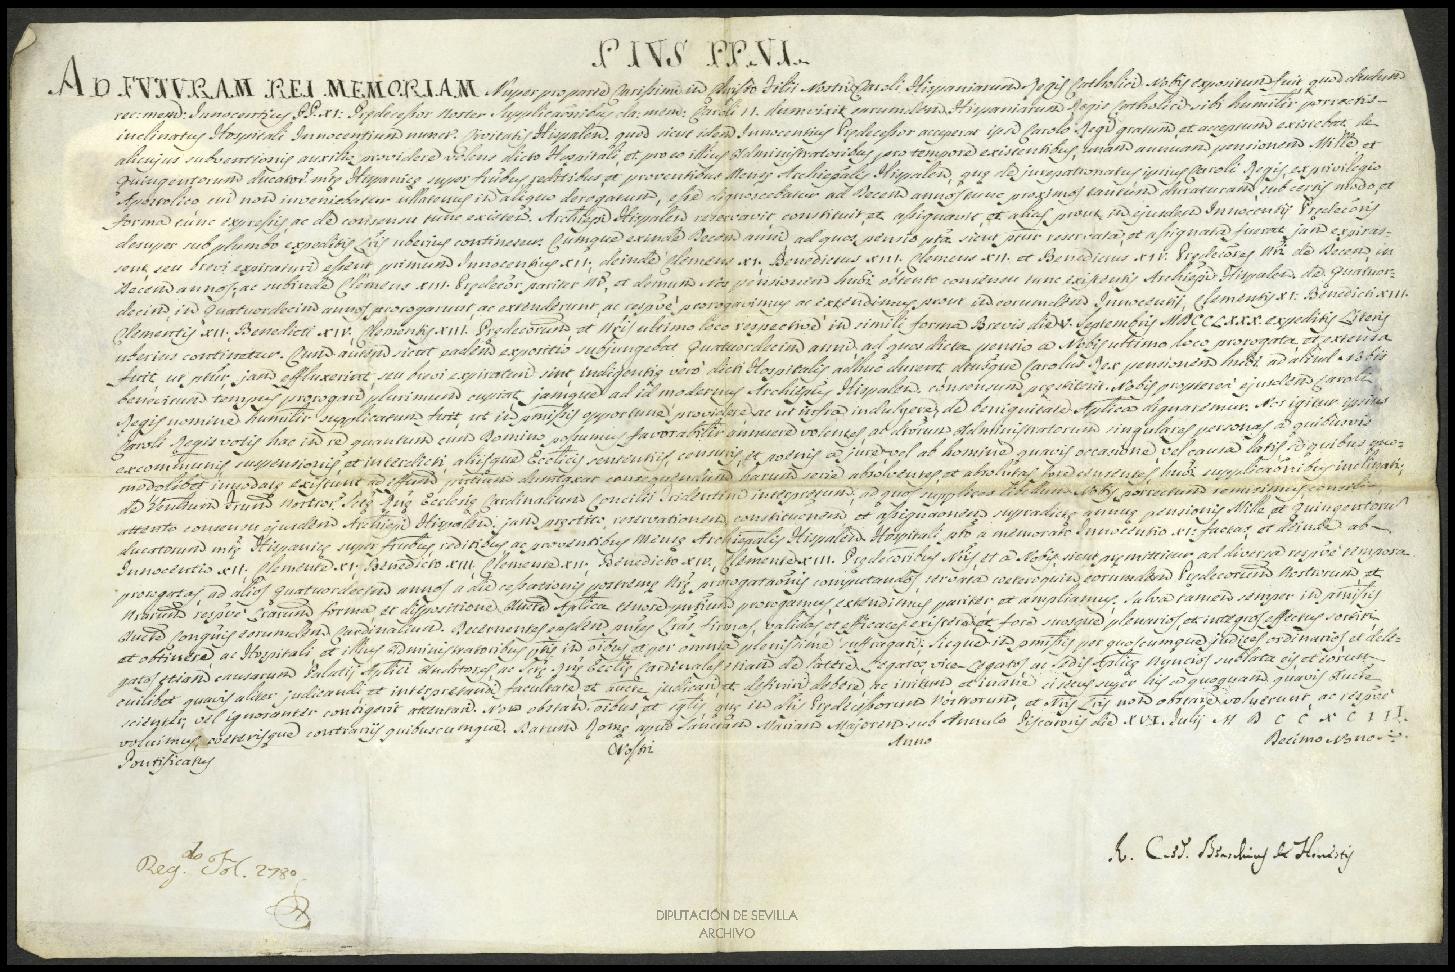 PIUS PP. VI.
AD FUTURAM REI MEMORIAM Nuper pro parte Carissimi in Christo Filii Nostri Caroli Hispaniarum Regis Catholici Nobis expositum fuit quod dudum
rec: mem: Innocentius PP. XI. Predecessor Noster supplicationibus cla: mem: Caroli II. dum vixit earumdem Hispaniarum Regis Catholici sibi humiliter porrectis
inclinatus Hospitali Innocentium nuncr. Civitatis Hispalen. quod sicut idem Innocentius Predecessor acceperat ipsi Carolo Regi gratum et acceptum existebat de
alicujus subventionis auxilio providere volens dicto Hospitali, et pro eo illius Administratoribus pro tempore existentibus, unam annuam pensionem Mille et
Quingentorum ducator. mtę Hispanicę super fructibus redditibus et proventibus Mensę Archiepalis Hispalen. quę de jurepatronatus ipsius Caroli Regis, ex privilegio
Apostolico cui non inveniebatur ullatenus in aliquo derogatum, esse dignoscebatur ad Decem annos tunc proximos tantum duraturam, sub certis modo et
forma tunc expressis ac de consensu tunc existen. Archiepi Hispalen reservavit constituit et assignavit et alias prout in ejusdem Innocentii Predecoris
desuper sub plumbo expeditis Lris uberius continetur. Cumque exinde Decem anni ad quos pensio pta sicut ptur reservata et assignata fuerat jam expiras-
sent, seu brevi expiraturi essent primum Innocentius XII, deinde Clemens XI. Benedictus XIII. Clemens XII. et Benedictus XIV. Predecores Nri de Decem in
Decem annos, ac subinde Clemens XIII. Predecor pariter Nr, et demum Nos pensionem hmoi obtento consensu tunc existentis Archiepi Hispalen de Quatuor-
decim in Quatuordecim annos prorogarunt ac extenderunt, ac respve prorogavimus ac extendimus prout in eorumdem Innocentii, Clementis XI. Benedicti XIII.
Clementis XII. Benedicti XIV. Clementis XIII. Predecorum et Nris ultimo loco respective in simili forma Brevis die V. Septembris MDCCLXXX. expeditis Literis
uberius continetur. Cum autem sicut eadem expositio subjungebat Quatuordecim anni ad quos dicta pensio a Nobis ultimo loco prorogata et extensa
fuit, ut ptur, jam effluxerint seu brevi expiraturi sint indigentię vero dicti Hospitalis adhuc durent dictusque Carolus Rex pensionem hmoi ad aliud Nobis
benevisum tempus prorogari plurimum cupiat, jamque ad id modernus Archiepus Hispalen. consensum pręstiterit. Nobis propterea ejusdem Caroli
Regis nomine humiliter supplicatum fuit ut in pmissis opportune providere ac ut infra indulgere de benignitate Aplica dignaremur. Nos igitur ipsius
Caroli Regis votis hac in re quantum cum Domino possumus favorabiliter annuere volentes, ac dictorum Administratorum singulares personas a quibusvis
excommunis suspensionis et interdicti aliisque Ecclicis sententiis, censuris et poenis a jure vel ab homine quavis occasione vel causa latis si quibus quo-
modolibet innodatę existunt ad effum pntium dumtaxat consequendum harum serie absolventes et absolutas fore censentes hmoi supplicationibus inclinati,
de Venblium Frum Nostror. Stę Rnę Ecclesię Cardinalium Concilii Tridentini interpretum, ad quos supplicem libellum Nobis porrectum remisimus, consilio
attento consensu ejusdem Archiepi Hispalen. jam pręstito, reservationem, constitutionem, et assignationem supradictę annuę pensionis Mille et Quingentorum
ducatorum mtę Hispanicę super fructibus redditibus ac proventibus Mensę Archiepalis Hispalen. Hospitali pto a memorato Innocentio XI. factas, et deinde ab
Innocentio XII. Clemente XI. Benedicto XIII. Clemente XII. Benedicto XIV. Clemente XIII. Predecoribus Nris, et a Nobis, sicut pręmittitur ad diversa respve tempora
prorogatas ad alios quatuordecim annos a die cessationis postremę Nrę prorogationis computandos servata ceteroquin eorumdem Predecorum Nostrorum et
Nrarum respve Lrarum forma et dispositione Aucte Aplica tenore pntium prorogamus extendimus pariter et ampliamus. Salva tamen semper in pmissis
Aucte Congnis eorumdem Cardinalium. Decernentes easdem pntes Lras firmas, validas et efficaces existere et fore suosque plenarios et integros effectus sortiri
et obtinere ac Hospitali et illius administratoribus ptis in oibus et per omnia plenissime suffragari. Sicque in pmissis per quoscumque judices ordinarios et dele-
gatos etiam causarum Palatii Aplici Auditores ac Stę Rnę Ecclię Cardinales etiam de latere Legatos vice-Legatos ac Sedis Aplicę Nuncios sublata eis et eorum
cuilibet quavis aliter judicandi et interpretandi facultate et aucte judicari et definiri debere ac irritum et inane si secus super his a quoquam quavis Aucte
scienter, vel ignoranter contigerit attentari. Non obstan. oibus et sglis quę in dtis Predecessorum Nostrorum, et Nris Lris non obstare voluerunt, ac respve
voluimus, ceterisque contrariis quibuscumque. Datum Romę apud Sanctam Mariam Majorem sub Annulo Piscatoris die XVI. Julij MDCCXCIII.
Pontificatus Nostri Anno Decimo Nono
Reg.do Fol. 278
R. Card. Braschius de Honestis
DIPUTACIÓN DE SEVILLA
ARCHIVO